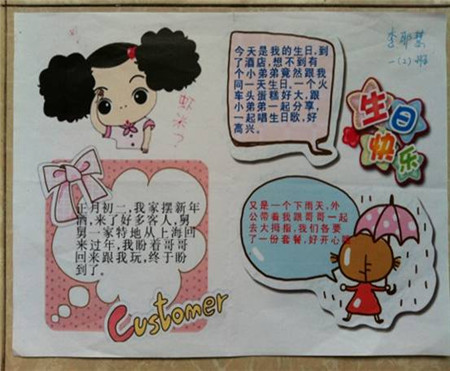 今天是我的生日,到
了酒店,想不到有
个小弟弟竟然跟我
同一天生日,一个火
车头蛋糕好大,跟
小弟弟一起分享,
一起唱生日歌,好
高兴。
一(2)班
生日
快乐
正月初二,我家摆新年
酒,来了好多客人,舅
舅一家特地从上海回
来过年,我盼着哥哥
回来跟我玩,终于盼
到了。
又是一个下雨天,外
公带着我跟哥哥一起
去大拇指,我们各要
了一份套餐,好开心
Customer